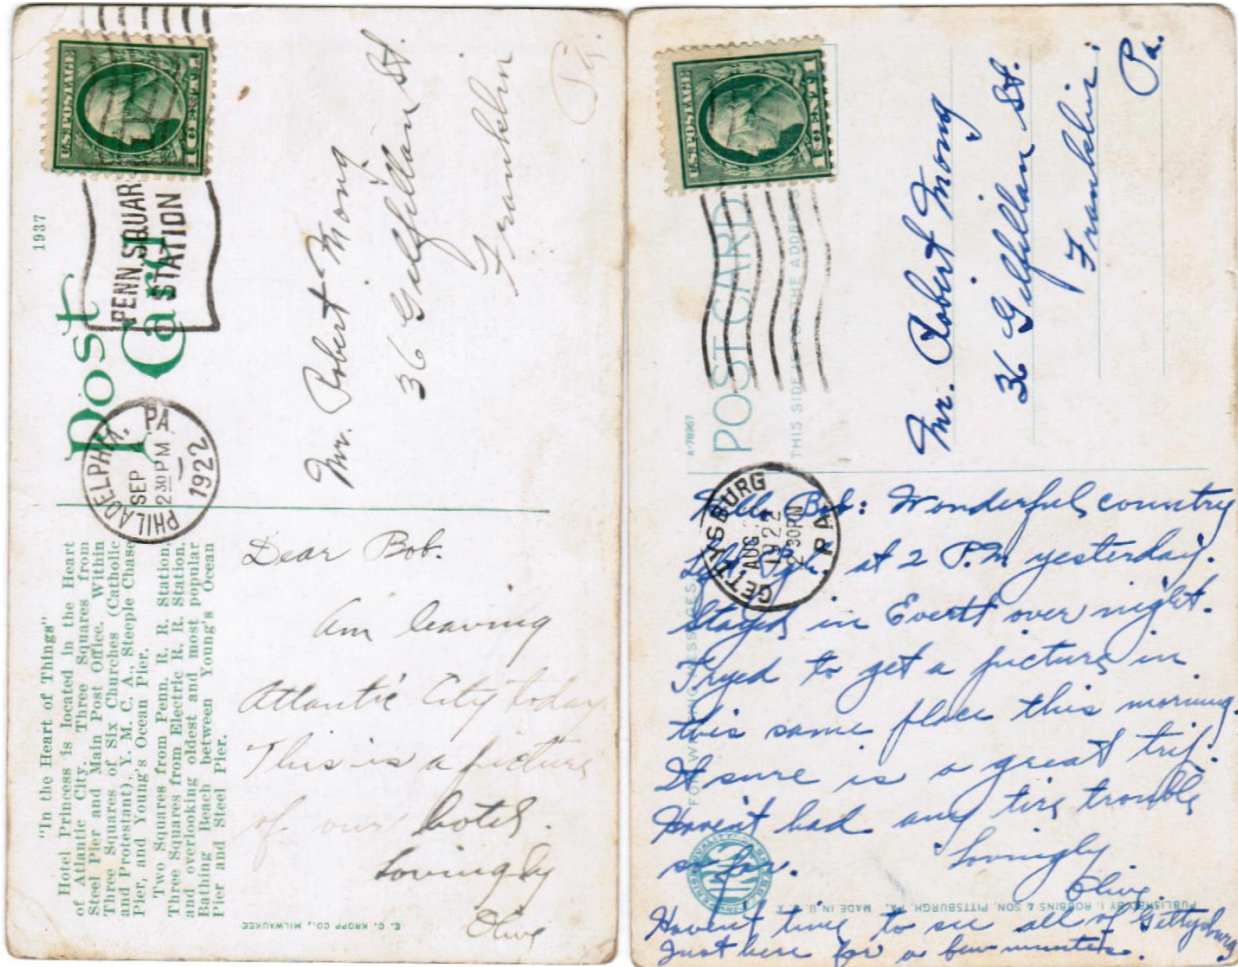 U.S. POSTAGE
1 CENT 1
PENN SQUAR
STATION
1937
Post
Card
PHILADELPHIA, PA.
SEP
2 30 PM
1922
Mr. Robert Mong
36 Gilfillan St.
Franklin
Pa.
"In the Heart of Things"
Hotel Princess is located in the Heart
of Atlantic City. Three Squares from
Steel Pier and Main Post Office. Within
Three Squares of Six Churches (Catholic
and Protestant), Y. M. C. A., Steeple Chase
Pier, and Young's Ocean Pier.
Two Squares from Penn. R. R. Station,
Three Squares from Electric R. R. Station,
and overlooking oldest and most popular
Bathing Beach between Young's Ocean
Pier and Steel Pier.
Dear Bob.
Am leaving
Atlantic City today
This is a picture
of our hotel.
Lovingly
Olive
E. C. KROPP CO., MILWAUKEE
U.S. POSTAGE
1 CENT 1
POST CARD
THIS SIDE IS FOR THE ADDRESS
A-78967
GETTYSBURG
AUG
1922
2 30 PM
PA.
Mr. Robert Mong
36 Gilfillan St.
Franklin
Pa.
Hello Bob: Wonderful country
Left Pgh. at 2 P.M yesterday.
Stayed in Everett over night.
Tryed to get a picture in
this same place this morning.
It sure is a great trip.
Haven't had any tire trouble
so far.
Lovingly
Olive
Haven't time to see all of Gettysburg
Just here for a few minutes.
PUBLISHED BY I. ROBBINS & SON, PITTSBURGH, PA. MADE IN U. S. A.